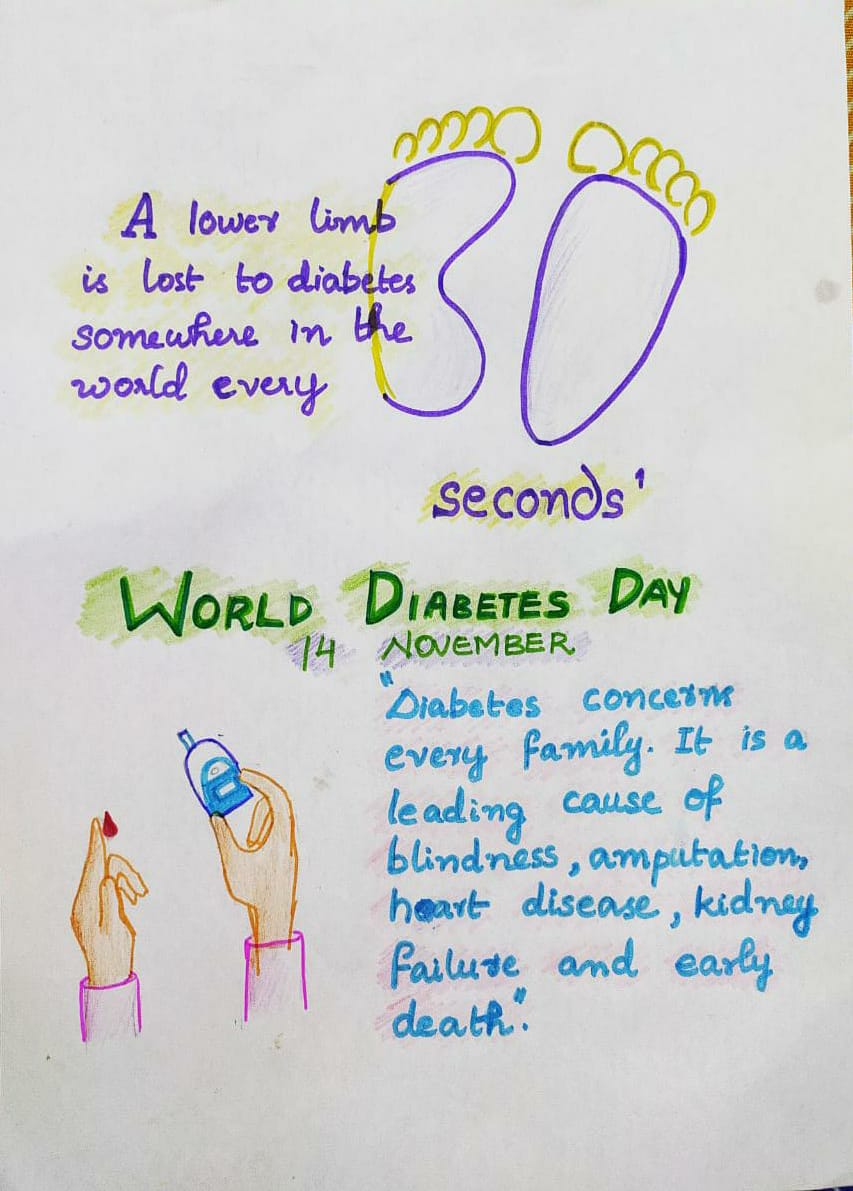 A lower limb
is lost to diabetes
somewhere in the
world every
30
seconds'
WORLD DIABETES DAY
14 NOVEMBER
"Diabetes concerns
every family. It is a
leading cause of
blindness, amputation,
heart disease, kidney
failure and early
death".